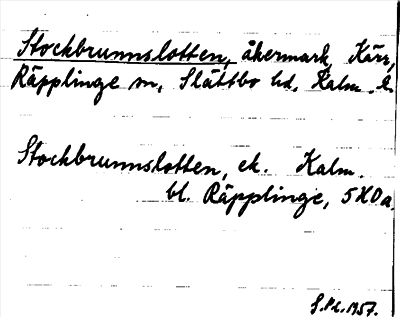 Stockbrunnslotten, åkermark, Kärr,
Räpplinge sn, Slättbo hd, Kalm. l.
Stockbrunnslotten, ek. Kalm.
bl. Räpplinge, 5 H 0 a.
1957.